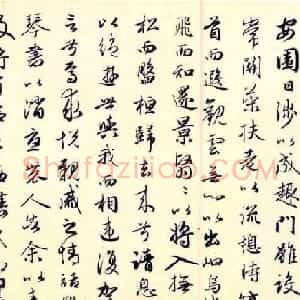 安園日涉以成趣門雖設
常關策扶老以流憩時矯
首而遐觀雲無心以出岫鳥
飛而知還景翳〻以將入撫
松而盤桓歸去來兮請息
以絕遊世與我而相違復駕
言兮焉求悅親戚之情話
琴書以消憂農人告余以春
Shufaziliao.com